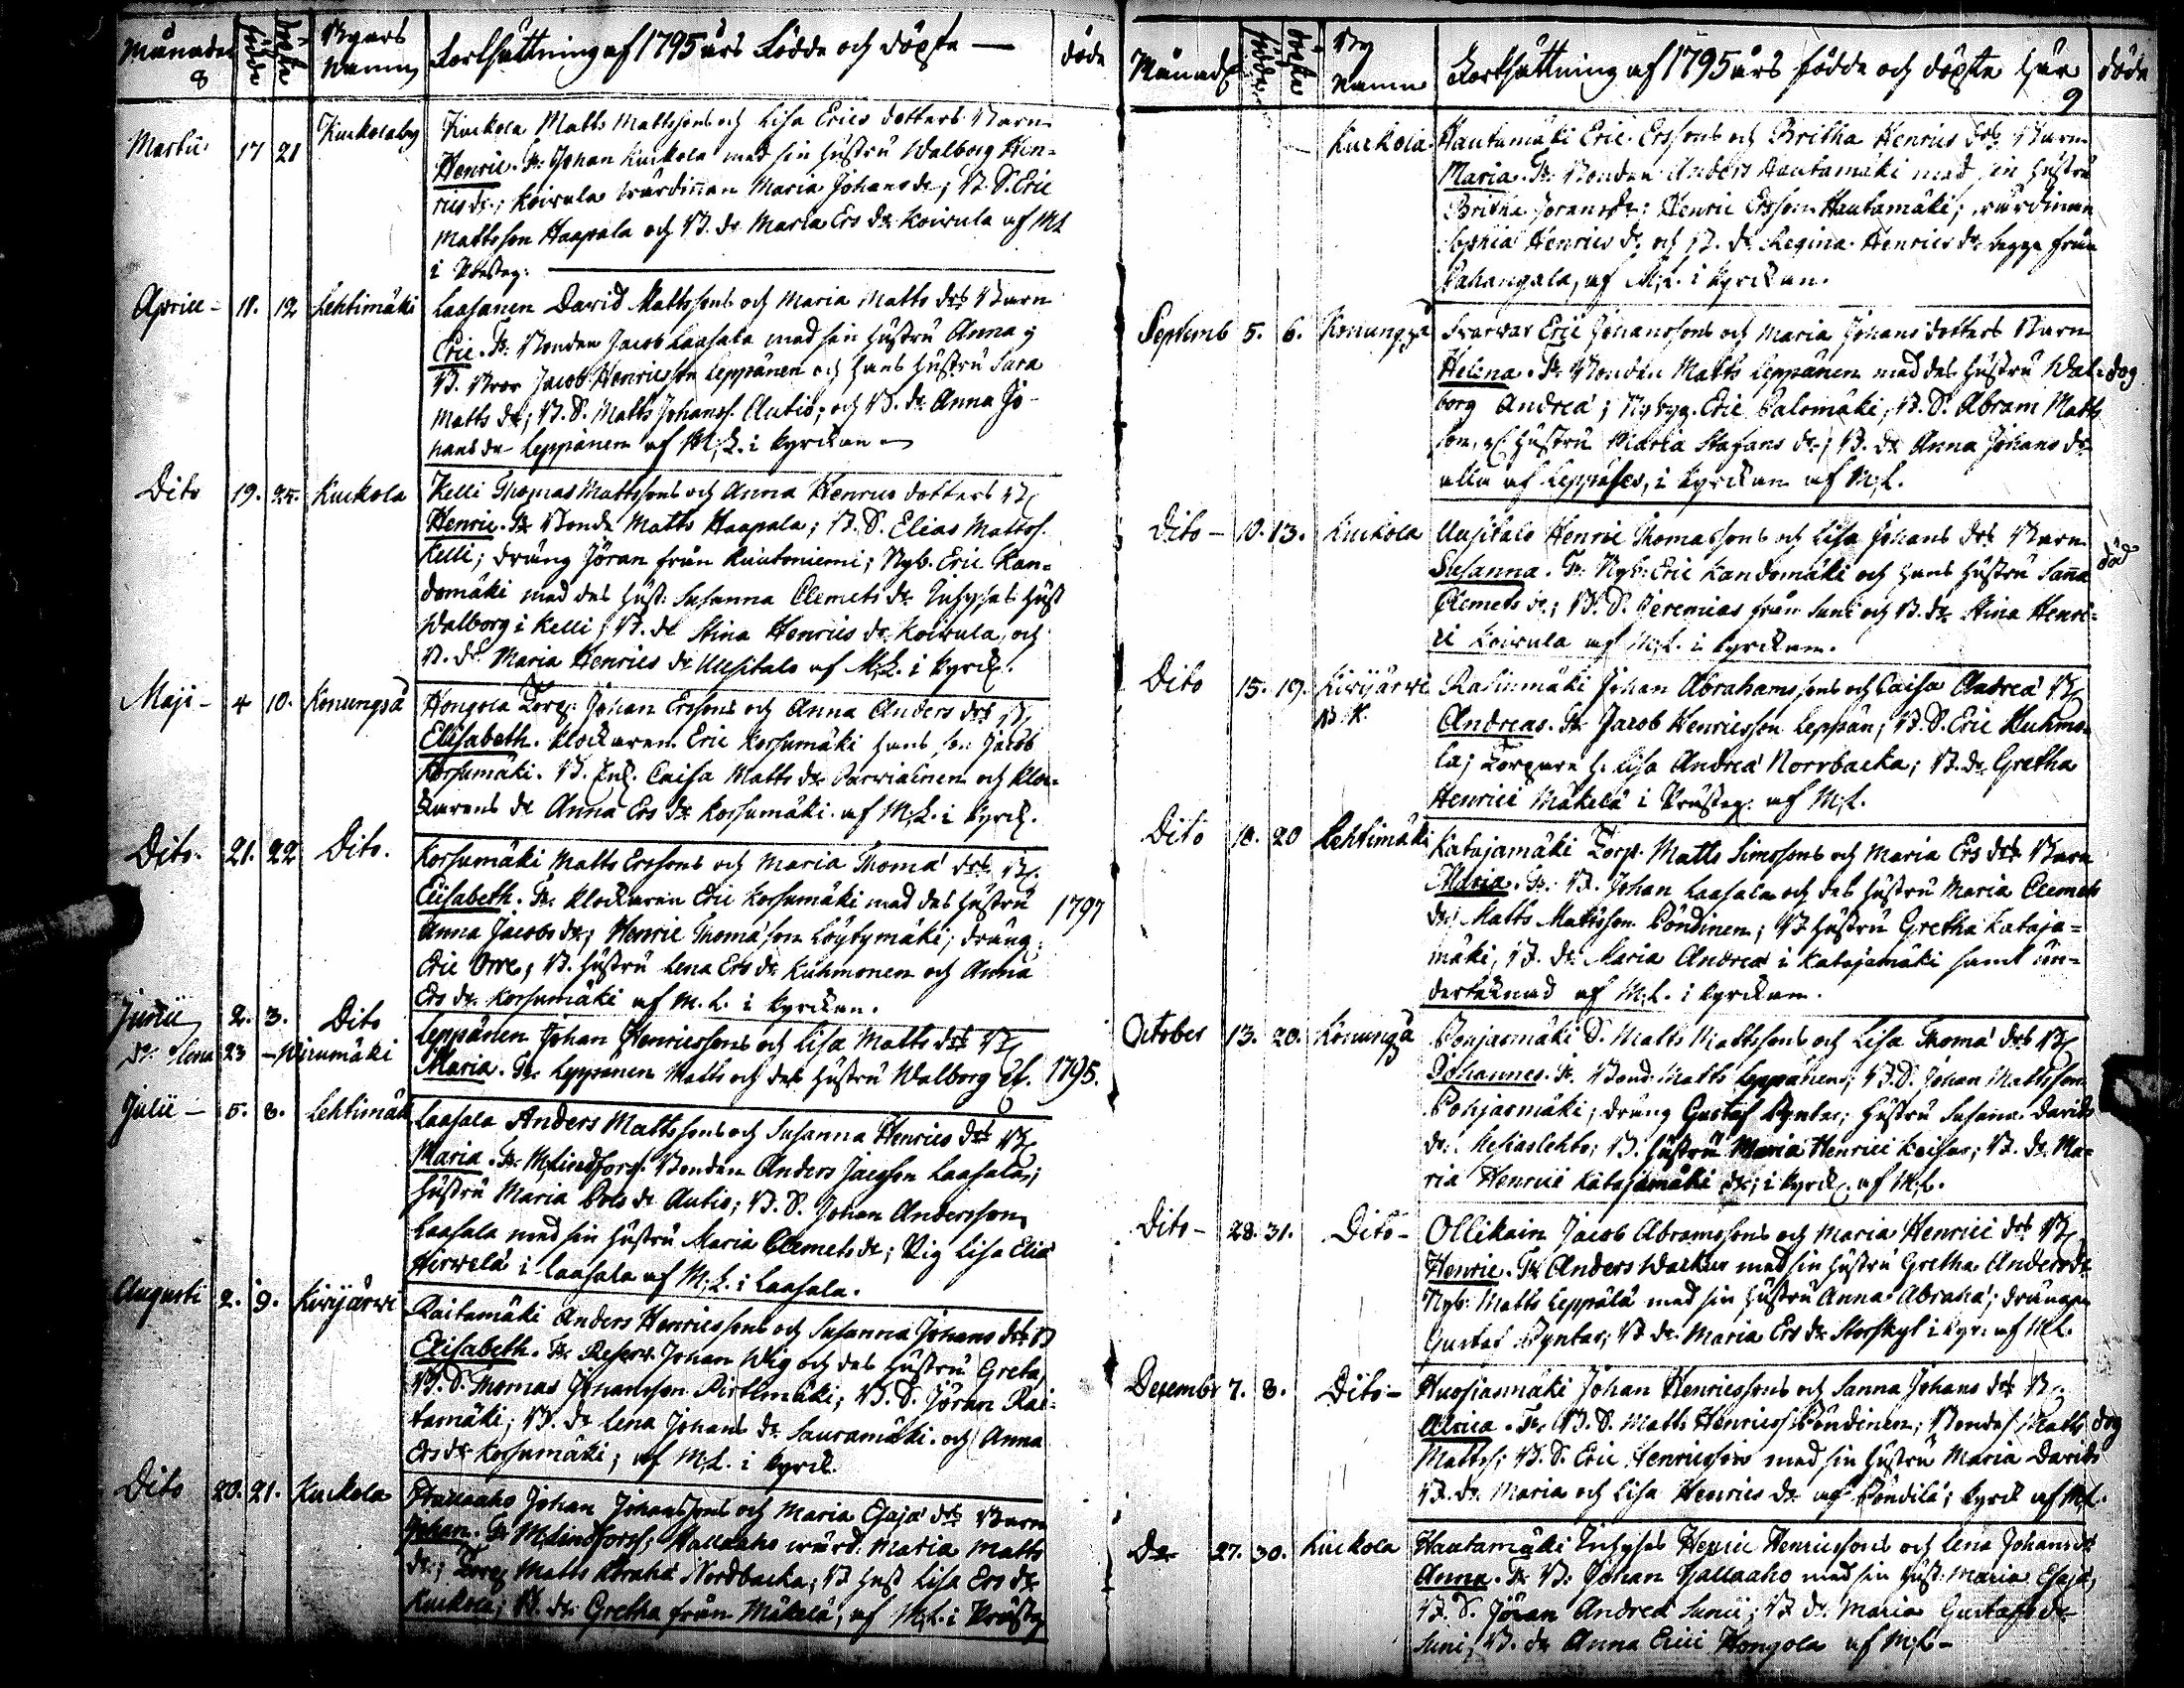 Månader födde döpte Byars Namn Fortsättning af 1795 års Födde och döpte — döde
8
Martii 17 21 Kuckolaby Kuckola Matts Mattssons och Lisa Erics dotters Barn
Henric. Fr. Johan Kuckola med sin hustru Walborg Hen-
rics dr; Koivula wärdinnan Maria Johans dr; B. S. Eric
Mattsson Haapala och B. dr Maria Ers dr Koivula af ML
i Prösteg:
Aprill - 11. 12 Lehtimäki Laasanen David Mattssons och Maria Matts drs Barn
Eric. Fr. Bonden Jacob Laasala med sin hustru Anna;
B. Bror Jacob Henricsson Leppänen och hans hustru Sara
Matts dr; B. S. Matts Johanss. Autio; och B. dr Anna Jo-
hans dr Leppänen af M. L. i kyrckan
Dito 19. 25. Kuckola Kelli Thomas Mattssons och Anna Henrics dotters B
Henric. Fr Bonde Matts Haapala; B. S. Elias Mattss.
Kelli; dräng Jöran från Kuutoniemi; Nyb. Eric Kan-
domäki med des hust. Susanna Clemets dr Inhyses hust
Walborg i Kelli; B. dr Stina Henrics dr Koivula, och
B. dr Maria Henrics dr Uusitalo af M. L. i kyrck.
Maji - 4 10. Konungså Hongola Torp. Johan Erssons och Anna Anders drs B
Elisabeth. Klockaren Eric Korsumäki hans son Jacob
Korsumäki. B. Caisa Matts dr och Kloc-
karens dr Anna Ers dr Korsumäki af M. L. i kyrck.
Dito. 21. 22 Dito. Korsumäki Matts Erssons och Maria Thomæ drs B
Elisabeth. Fr. Klockaren Eric Korsumäki med des hustru 1797
Anna Jacobs dr; Henric Thomæson Löytymäki; dräng
Eric Orre; B. hustru Lena Ers dr Kuhmonen och Anna
Ers dr Korsumäki af M. L. i kyrckan.
Junii 2. 3. Dito Leppänen Johan Henricssons och Lisa Matts drs B
dr Lena 23 - Wirumäki Maria. Fr. Leppänen Matts och des hustru Walborg 1795.
Julii - 5. 8. Lehtimäk Laasala Anders Mattssons och Susanna Henrics drs B
Maria. Fr. M. Lindfors. Bonden Anders Jacsson Laasala;
hustru Maria dr Autio; B. S. Johan Andersson
Laasala med sin hustru Maria Clemets dr; Pig Lisa Eliæ
Hirvelä i Laasala af M. L. i Laasala.
Augusti 2. 9. Kiwijärwi Raitamäki Anders Henricssons och Susanna Johans drs B
Elisabeth. Fr. Reserv. Johan Wig och des hustru Greta,
B. S. Thomas Johansson Pirttimäki; B. S. Jöran Rai-
tamäki; B. dr Lena Johans dr Sauramäki och Anna
Ers dr Korsumäki; af M. L. i kyrck.
Dito 20. 21. Kuckola Hallaaho Johan Johanssons och Maria Esajæ drs Barn
Johan. Fr M. Lindfors; Hallaaho wärd. Maria Matts
dr; Torp Matts Abrahæ Nordbacka; B hust Lisa Ers dr
Kuckola; B. dr Gretha från Mäkelä, af M. L. i Prösteg
Månad födde döpte By Namn Fortsättning af 1795 års födde och döpte här döde
9
Kuckola Hautamäki Eric Erssons och Britha Henrics drs Barn
Maria. Fr. Bonden Anders Hautamäki med sin hustru
Britha Jörans dr: Henric Ersson Hautamäki; wärdinan
Sophia Henrics dr och B. dr Regina Henrics dr begge från
Pahangala, af M. L. i kyrckan.
Septemb 5. 6. Konungså Swarvar Eric Johanssons och Maria Johans dotters Barn
Helena. Fr. Bonden Matts Leppänen med des hustru Wal- dog
borg Andreæ; Nybyg. Eric Palomäki, B. S. Abram Matts
son, hustru Maria Stafans dr; B. dr Anna Johans dr
alla af Leppäses, i kyrckan af M. L.
Dito - 10. 13. Kuckola Uusitalo Henric Thomassons och Lisa Johans drs Barn
Susanna. Fr. Nyb: Eric Kandomäki och hans hustru Sana död
Clemets dr; B. S. Jeremias från Suni och B. dr Stina Henri-
ci Koivula af M. L. i kyrckan.
Dito 15. 19. Kiwijärwi Rasinmäki Johan Abrahamssons och Caisa Andreæ B
B. K. Andreas. Fr Jacob Henricsson Leppän; B. S. Eric Kuhmo-
la; Torpare h. Lisa Andreæ Norrbacka; B. dr Gretha
Henrici Mäkelä i Prästeg: af M. L.
Dito 18. 20 Lehtimäki Katajamäki Torp. Matts Simssons och Maria Ers drs Barn
Maria. Fr. B. Johan Laasala och des hustru Maria Clemets
dr; Matts Mattsson Pöndinen; B hustru Gretha Kataja-
mäki, B. dr Maria Andreæ i Katajamäki samt un-
dertecknad af M. L. i kyrckan.
October 13. 20. Konungså Pohjasmäki S. Matts Mattssons och Lisa Thomæ drs B
Johannes. Fr. Bond Matts Leppänen; B. S. Johan Mattsson
Pohjasmäki; dräng Gustaf Pynter; hustru Susana Davids
dr: B. hustru Maria Henrici Keisar; B. dr Ma-
ria Henrici Katajamäki dr; i kyrck. af M. L.
Dito - 28. 31. Dito - Ollikain Jacob Abramssons och Maria Henrici drs B
Henric. Fr Anders Wacker med sin hustru Gretha Anders dr
Nyb: Matts Leppälä med sin hustru Anna Abrahæ; drängen
Gustaf Pynter; B dr Maria Ers dr Storskyl i kyr. af M. L.
Decembr 7. 8. Dito - Huosianmäki Johan Henricssons och Sanna Johans drs B
Ulrica. Fr. B. S. Matts Henricss Pöndinen; Bondes Matts dog
Mattss; B. S. Eric Henricsson med sin hustru Maria Davids
B. dr Maria och Lisa Henrics dr af Pöndilä; kyrck af ML.
Dr 27. 30. Kuckola Hautamäki Inhyses Henric Henricssons och Lena Johans dr
Anna. Fr B. Johan Hallaaho med sin hust. Maria Esajæ,
B. S. Jöran Andreæ Sunii; B dr Maria Gustafs dr
Suni; B. dr Anna Erici Hongola af M. L -